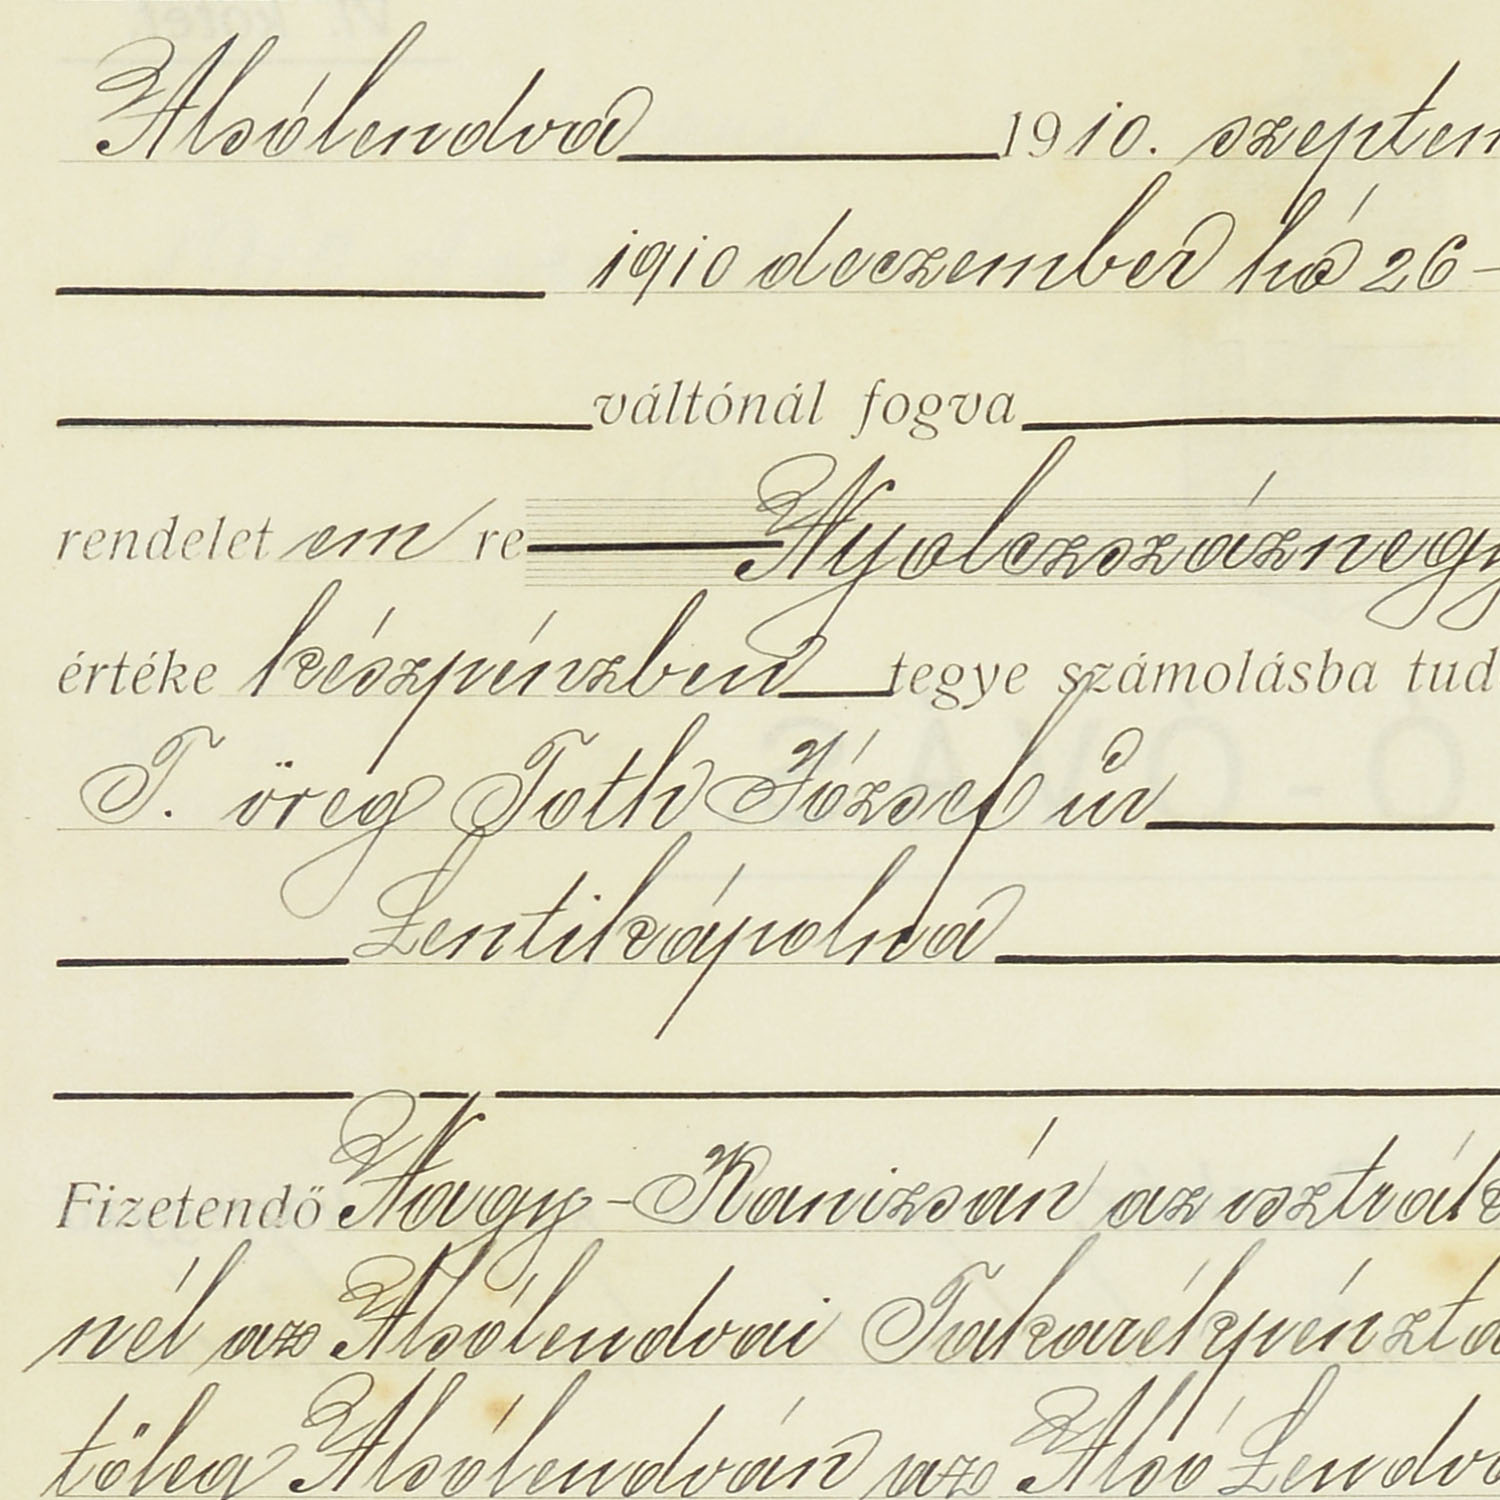 Alsólendva 1910. szeptem
1910 deczember hó 26-
váltónál fogva
rendelet em re Nyolczszáznegy
értéke készpénzben tegye számolásba tud
T. öreg Toth József úr
Lentikápolna
Fizetendő Nagy-Kanizsán az osztrák
nél az Alsólendvai Takarékpénzta
tőleg Alsólendván az Alsó Lendva